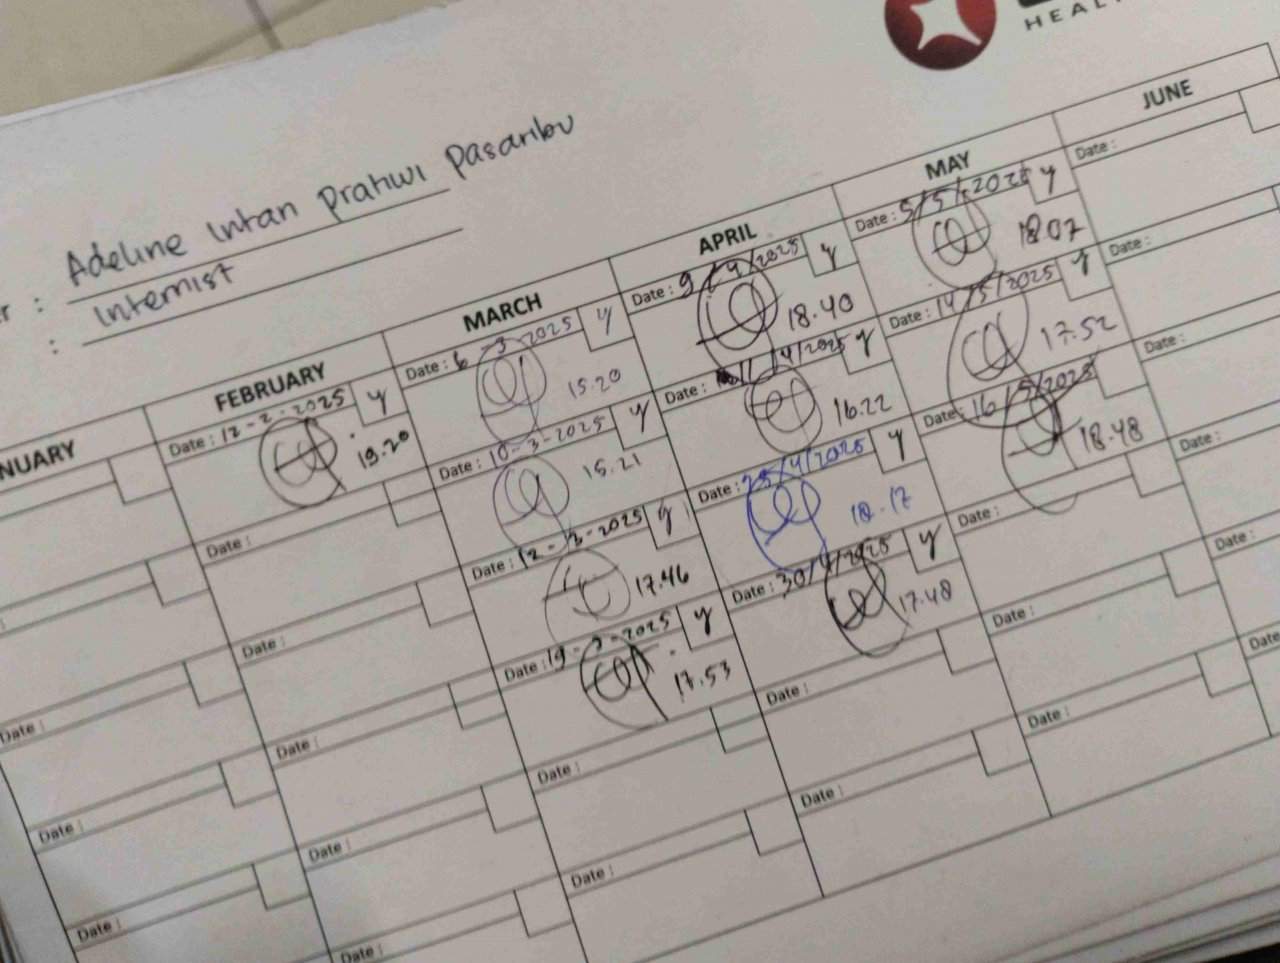 HEAL
Adeline Intan Pratiwi Pasaribu
r :
Internist
:
NUARY
FEBRUARY
MARCH
APRIL
MAY
JUNE
Date :
Date :
Date :
Date : 12-2-2025 y
19.20
Date :
Date :
Date :
Date :
Date :
Date : 6-3-2025 y
15.20
Date : 10-3-2025 y
15.21
Date : 12-3-2025 y
17.46
Date : 19-3-2025 y
17.53
Date :
Date :
Date : 9/4/2025 y
18.40
Date : 11/4/2025 y
16.22
Date : 25/4/2025 y
18.17
Date : 30/4/2025 y
17.48
Date :
Date :
Date : 5/5/2025 y
18.07
Date : 14/5/2025 y
17.52
Date : 16/5/2025
18.48
Date :
Date :
Date :
Date :
Date :
Date :
Date :
Date :
Date :